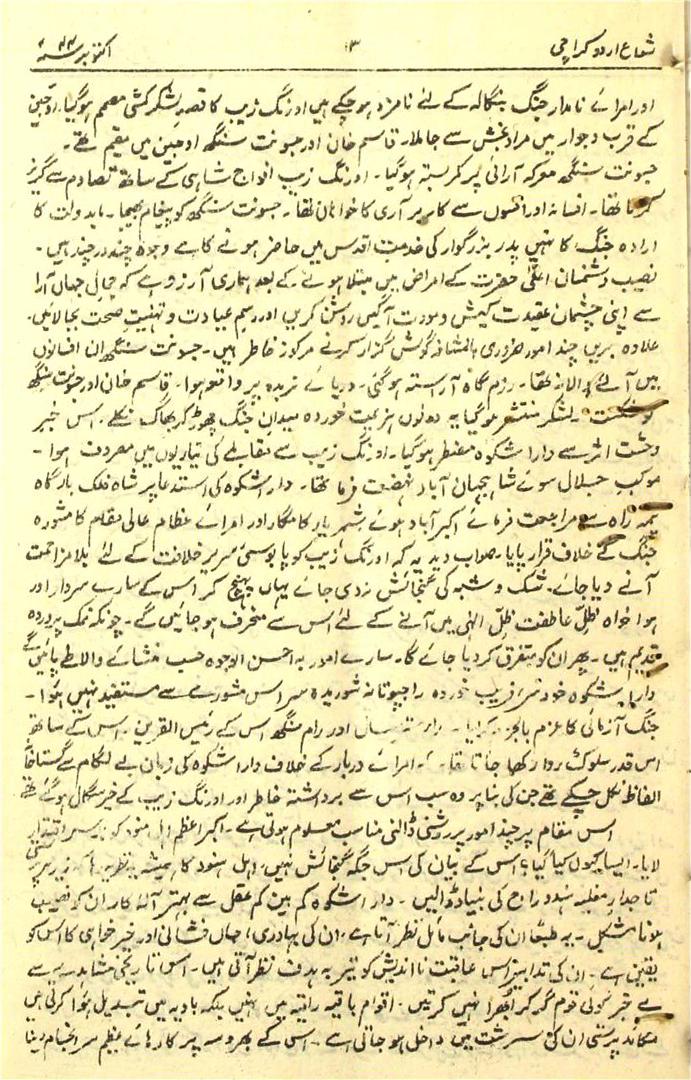 شعاع اردو کراچی
۱۳
اکتوبر سنہ ۴۴ء
اور امرائے نامدار جنگ بنگالہ کے لئے نامزد ہو چکے ہیں اورنگ زیب کا قصدِ لشکر کشی مصمم ہوگیا۔ اوجین
کے قرب وجوار میں مراد بخش سے جا ملا۔ قاسم خان اور جسونت سنگھ اوجین میں مقیم تھے۔
جسونت سنگھ معرکہ آرائی پر کمر بستہ ہوگیا۔ اورنگ زیب افواج شاہی کے ساتھ تصادم سے گریز
کرتا تھا۔ افسانہ اور افسوں سے کاربرآری کا خواہاں تھا۔ جسونت سنگھ کو پیغام بھیجا۔ مابدولت کا
ارادہ جنگ کا نہیں پدر بزرگوار کی خدمت اقدس میں حاضر ہونے کا ہے وجوہ چند در چند ہیں۔
نصیب دشمنان اعلیٰ حضرت کے امراض میں مبتلا ہونے کے بعد ہماری آرزو ہے کہ جمال جہاں آرا
سے اپنی چشمان عقیدت کیش و مورت آگیں روشن کریں اور رسم عیادت و تہنیت صحت بجا لائیں۔
علاوہ بریں چند امور ضروری بالمشافہ گوش گزار کرنے مرکوز خاطر ہیں۔ جسونت سنگھ ان افسانوں
میں آنے والا نہ تھا۔ رزم گاہ آراستہ ہوگئی۔ دریائے نربدہ پر واقع ہوا۔ قاسم خان اور جسونت سنگھ
کو شکست۔ لشکر منتشر ہوگیا یہ دونوں ہزیمت خوردہ میدان جنگ چھوڑ کر بھاگ نکلے۔ اس خبر
وحشت اثر سے دارا شکوہ مضطر ہوگیا۔ اورنگ زیب سے مقابلے کی تیاریوں میں مصروف ہوا۔
موکب جلال سوئے شاہجہاں آباد نہضت فرما تھا۔ دارا شکوہ کی استدعا پر شاہ فلک بارگاہ
نیمہ راہ سے مراجعت فرمائے اکبر آباد ہوئے شہر یار کامگار اور امرائے عظام عالی مقام کا مشورہ
جنگ کے خلاف قرار پایا۔ صواب دید یہ کہ اورنگ زیب کو پابوسئ سریر خلافت کے لئے بلا مزاحمت
آنے دیا جائے۔ شک و شبہ کی گنجائش نہ دی جائے یہاں پہنچ کر اس کے سارے سردار اور
ہوا خواہ ظلِّ عاطفت ظلِّ الٰہی میں آنے کے لئے اس سے منحرف ہو جائیں گے۔ چونکہ نمک پروردہ
قدیم ہیں۔ پھر ان کو متفرق کر دیا جائے گا۔ سارے امور بہ احسن الوجوہ حسب منشائے والا طے پائیں گے
دارا شکوہ خود سر فریب خوردہ راجپوتانہ شوریدہ سر اس مشورے سے مستفید نہیں ہوا۔
جنگ آزمائی کا عزم بالجزم کر لیا۔ اور رام سنگھ اس کے رئیس القرین۔ اس کے ساتھ
اس قدر سلوک روا رکھا جاتا تھا۔ کہ امرائے دربار کے خلاف دارا شکوہ کی زبان بے لگام سے گستاخانہ
الفاظ نکل چکے تھے جن کی بنا پر وہ سب اس سے برداشتہ خاطر اور اورنگ زیب کے خیر سگال ہوگئے تھے
اس مقام پر چند امور پر روشنی ڈالنی مناسب معلوم ہوتی ہے۔ اکبر اعظم اہل ہنود کو برسر اقتدار
لایا۔ ایسا کیوں کیا گیا؟ اس کے بیان کی اس جگہ گنجائش نہیں۔ اہل ہنود کا ہمیشہ یہ نظریہ کہ زیر سرپرستی
تاجدار مغلیہ ہندو راج کی بنیاد ڈالیں۔ دارا شکوہ کم بین کم عقل سے بہتر آلۂ کار ان کو نصیب
ہونا مشکل۔ یہ طبعًا ان کی جانب مائل نظر آتا ہے۔ ان کی بہادری، جاں فشانی اور خیر خواہی کا اس کو
یقین ہے۔ ان کی تدابیر اس عاقبت نا اندیش کو تیر بہ ہدف نظر آتی ہیں۔ اس تاریخی مشاہدے سے
بے خبر کوئی قوم گر کر ابھرا نہیں کرتیں۔ اقوام باقیہ راقیہ میں نہیں بلکہ بادیہ میں تبدیل ہوا کرتی ہیں
مکائد پرستی ان کی سرشت میں داخل ہو جاتی ہے۔ اس کے بھروسہ پر کارہائے عظیم سر انجام دینا